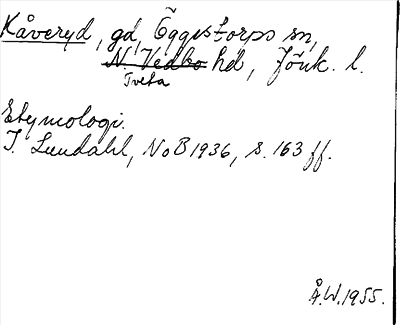 Kåveryd, gd, Öggestorps sn,
N. Vedbo hd, Jönk. l.
Tveta
Etymologi.
I. Lundahl, NoB 1936, s. 163 ff.
Å.W. 1955.